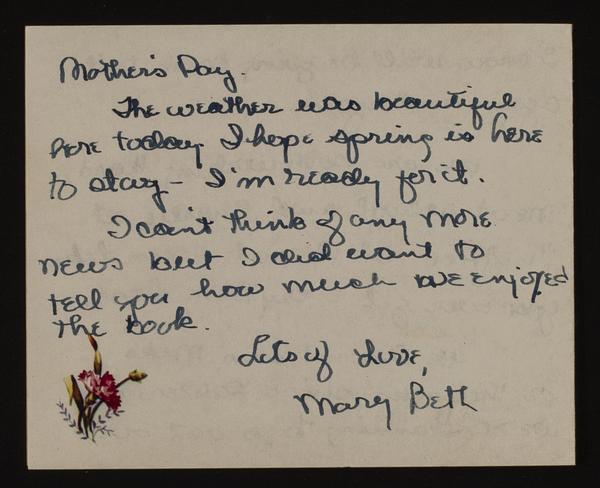 Mother's Day.
The weather was beautiful
here today I hope spring is here
to stay - I'm ready for it.
I can't think of any more
news but I did want to
tell you how much we enjoyed
the book.
Lots of Love,
Mary Beth